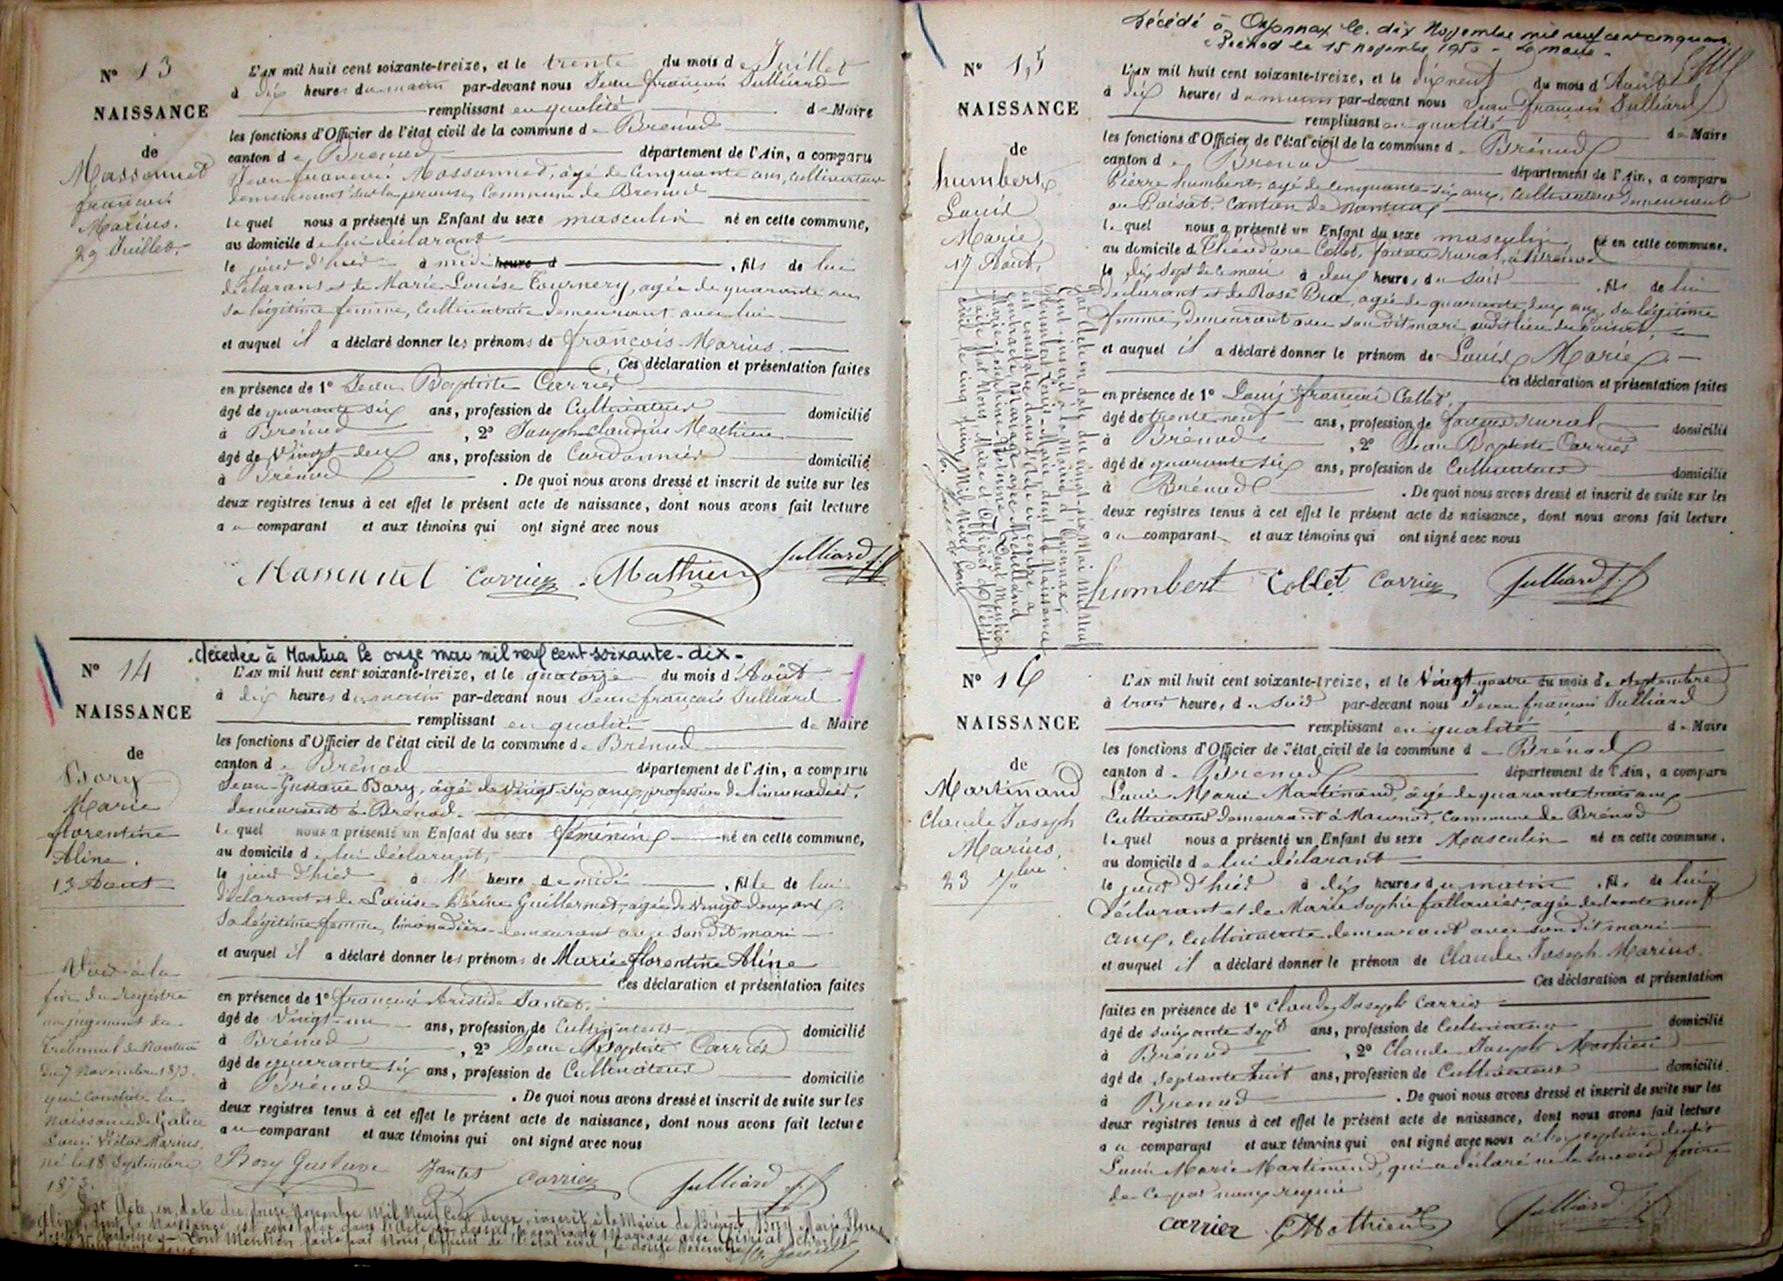 N° 13
NAISSANCE
de
Massonnet
françois
Marius.
29 Juillet.
L'AN mil huit cent soixante-treize, et le trente du mois de Juillet
à dix heures du matin par-devant nous Jean françois Julliard
remplissant en qualité de Maire
les fonctions d'Officier de l'état civil de la commune de Brénod
canton de Brénod département de l'Ain, a comparu
Jean françois Massonnet, âgé de cinquante ans, cultivateur
demeurant Commune de Brénod
lequel nous a présenté un Enfant du sexe masculin né en cette commune,
au domicile de lui déclarant
le jour d'hier à midi heure d , fils de lui
déclarant et de Marie Louise Tournery, agée de quarante ans
sa légitime femme, Cultivatrice demeurant avec lui
et auquel il a déclaré donner les prénoms de françois Marius.
Ces déclaration et présentation faites
en présence de 1° Jean Baptiste Carrier
âgé de quarante six ans, profession de Cultivateur domicilié
à Brénod , 2° Joseph Claudius Mathieu
âgé de vingt deux ans, profession de Cordonnier domicilié
à Brénod . De quoi nous avons dressé et inscrit de suite sur les
deux registres tenus à cet effet le présent acte de naissance, dont nous avons fait lecture
au comparant et aux témoins qui ont signé avec nous
Massonnet Carrier Mathieu Julliard J.f
N° 14
NAISSANCE
de
Bory
Marie
florentine
Aline.
13 Aout
décédée à Nantua le onze mai mil neuf cent soixante-dix-
L'AN mil huit cent soixante-treize, et le quatorze du mois d'Août
à dix heures du matin par-devant nous Jean françois Julliard
remplissant en qualité de Maire
les fonctions d'Officier de l'état civil de la commune de Brénod
canton de Brénod département de l'Ain, a comparu
Jean Gustave Bory, âgé de vingt six ans, profession de limonadier,
demeurant à Brénod.
lequel nous a présenté un Enfant du sexe féminin né en cette commune,
au domicile de lui déclarant,
le jour d'hier à 11 heure de midi , fille de lui
déclarant et de Louise Guillermet, agée de vingt deux ans
sa légitime femme, limonadière demeurant avec son dit mari
et auquel il a déclaré donner les prénoms de Marie florentine Aline
Ces déclaration et présentation faites
en présence de 1° françois Aristide Jantet,
âgé de vingt-un ans, profession de Cultivateur domicilié
à Brénod , 2° Jean Baptiste Carrier
âgé de quarante six ans, profession de Cultivateur domicilié
à Brénod . De quoi nous avons dressé et inscrit de suite sur les
deux registres tenus à cet effet le présent acte de naissance, dont nous avons fait lecture
au comparant et aux témoins qui ont signé avec nous
Bory Gustave Jantet Carrier Julliard J.f
Voir à la
fin du registre
un jugement du
tribunal de Nantua
du 7 Novembre 1873.
qui constate la
naissance de
Louis Victor Marius,
né le 18 Septembre
1873.
Par Acte en date du douze Novembre mil neuf cent inscrit à la Mairie de Brénod, Bory Marie
Aline dont la Naissance est constatée dans l'acte a contracté Mariage avec
Dont Mention faite par Nous, Officier de l'état civil, le douze Novembre
N° 15
NAISSANCE
de
humbert
Louis
Marie,
17 Aout,
Décédé à Oyonnax le dix Novembre mil neuf cent cinquante
Brénod le 15 novembre 1950 - Le Maire -
L'AN mil huit cent soixante-treize, et le dix neuf du mois d'Août
à dix heures du matin par-devant nous Jean françois Julliard
remplissant en qualité de Maire
les fonctions d'Officier de l'état civil de la commune de Brénod
canton de Brénod département de l'Ain, a comparu
Pierre humbert, agé de cinquante six ans, Cultivateur demeurant
au Poisat, Canton de Nantua
lequel nous a présenté un Enfant du sexe masculin, né en cette commune,
au domicile de Théodore Collet, facteur rural, à Brénod
le dix sept de ce mois à deux heures du soir , fils de lui
déclarant et de Rose Bra, agée de quarante deux ans, sa légitime
femme, demeurant avec son dit mari audit lieu du Poisat,
et auquel il a déclaré donner le prénom de Louis Marie
Ces déclaration et présentation faites
en présence de 1° Louis françois Collet,
âgé de trente neuf ans, profession de facteur rural domicilié
à Brénod , 2° Jean Baptiste Carrier
âgé de quarante six ans, profession de Cultivateur domicilié
à Brénod . De quoi nous avons dressé et inscrit de suite sur les
deux registres tenus à cet effet le présent acte de naissance, dont nous avons fait lecture
au comparant et aux témoins qui ont signé avec nous
humbert Collet Carrier Julliard J.f
Par Acte en date du vingt six Mai Mil Neuf
Cent inscrit à la Mairie d'Oyonnax
Humbert Louis-Marie dont la Naissance
est constatée dans l'acte ci-contre a
contracté Mariage avec
Marie Joséphine Dont mention
faite par Nous Maire et Officier de l'état
civil le cinq Juin Mil Neuf Cent
N° 16
NAISSANCE
de
Martinand
Claude Joseph
Marius,
23 7bre
L'AN mil huit cent soixante-treize, et le Vingt quatre du mois de Septembre
à trois heures du soir par-devant nous Jean françois Julliard
remplissant en qualité de Maire
les fonctions d'Officier de l'état civil de la commune de Brénod
canton de Brénod département de l'Ain, a comparu
Louis Marie Martinand, âgé de quarante trois ans
Cultivateur demeurant à Macornod, Commune de Brénod
lequel nous a présenté un Enfant du sexe Masculin né en cette commune,
au domicile de lui déclarant
le jour d'hier à dix heures du matin , fils de lui
déclarant et de Marie Sophie agée de trente neuf
ans, Cultivatrice demeurant avec son dit mari
et auquel il a déclaré donner le prénom de Claude Joseph Marius.
Ces déclaration et présentation
faites en présence de 1° Claude Joseph Carrier
âgé de soixante sept ans, profession de Cultivateur domicilié
à Brénod , 2° Claude Joseph Mathieu
âgé de septante huit ans, profession de Cultivateur domicilié
à Brénod . De quoi nous avons dressé et inscrit de suite sur les
deux registres tenus à cet effet le présent acte de naissance, dont nous avons fait lecture
au comparant et aux témoins qui ont signé avec nous à l'exception dudit
Louis Marie Martinand, qui a déclaré ne le savoir faire
de ce par nous requis
Carrier Mathieu Julliard J.f